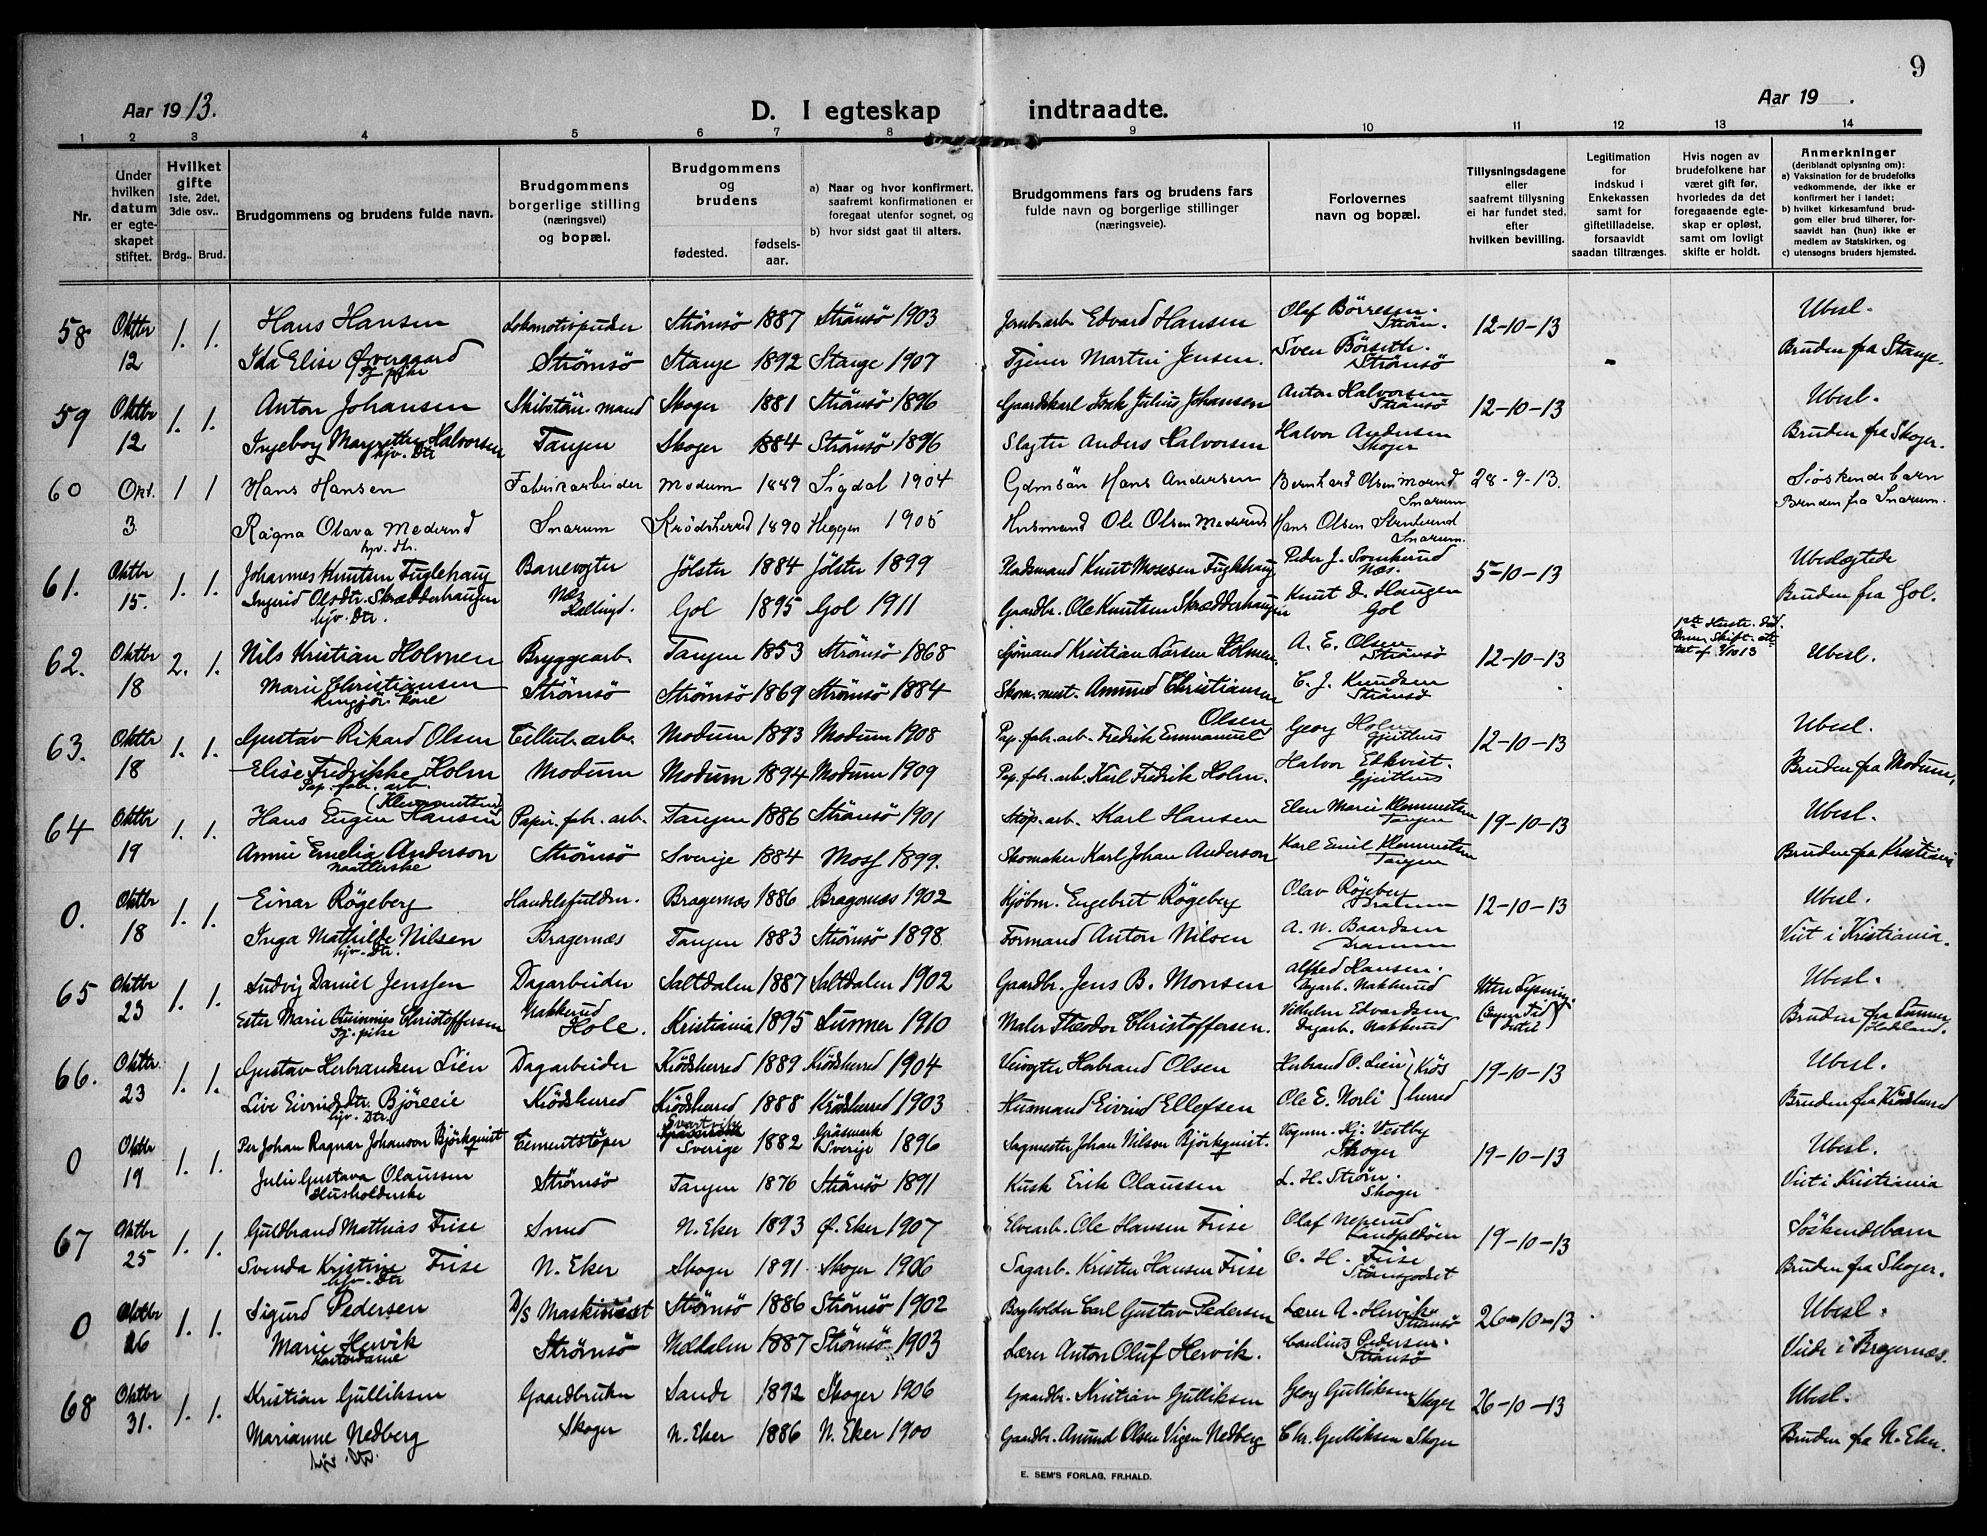 9
Aar 1913. D. I egteskap indtraadte. Aar 19 .
1 2 3 4 5 6 7 8 9 10 11 12 13 14
Nr.
Under hvilken datum er egteskapet stiftet.
Hvilket gifte 1ste, 2det, 3die osv..
Brdg.. Brud.
Brudgommens og brudens fulde navn.
Brudgommens borgerlige stilling (næringsvei) og bopæl.
Brudgommens og brudens
fødested. fødsels-aar.
a) Naar og hvor konfirmert, saafremt konfirmationen er foregaat utenfor sognet, og
b) hvor sidst gaat til alters.
Brudgommens fars og brudens fars fulde navn og borgerlige stillinger (næringsveie).
Forlovernes navn og bopæl.
Tillysningsdagene eller saafremt tillysning ei har fundet sted, efter hvilken bevilling.
Legitimation for indskud i Enkekassen samt for giftetilladelse, forsaavidt saadan tiltrænges.
Hvis nogen av brudefolkene har været gift før, hvorledes da det foregaaende egteskap er opløst, samt om lovlig skifte er holdt.
Anmerkninger (deriblandt oplysning om):
a) Vaksination for de brudefolks vedkommende, der ikke er konfirmert her i landet;
b) hvilket kirkesamfund brudgom eller brud tilhører, forsaavidt han (hun) ikke er medlem av Statskirken, og
c) utensogns bruders hjemsted.
58 Oktbr 12 1. 1. Hans Hansen Lokomotivpudser Strømsö 1887 Strömsö 1903 Jernb.arb. Edvard Hansen Olaf Börresen. Ström. 12-10-13 Ubesl.
Ida Elise Overgaard Tj. pike Strømsö Stange 1892 Stange 1907 Tjener Martin Jensen. Sven Börseth. Strömsö Bruden fra Stange.
59 Oktbr 12 1. 1. Anton Johansen Skibstöm. mand Skoger 1881 Strömsö 1896 Gaardskarl Isak Julius Johansen Anton Halvorsen Strömsö 12-10-13 Ubesl.
Ingeborg Margrethe Halvorsen hjv. Dtr Tangen Skoger 1884 Strömsö 1896 Slagter Anders Halvorsen Halvor Andersen Skoger Bruden fra Skoger.
60 Okt. 3 1 1 Hans Hansen Fabrikarbeider Modum 1889 Sigdal 1904 Gdmsön Hans Andersen Bernhard Olsen Snarum 28-9-13. Söskendebarn
Ragna Olava hjv. dtr. Snarum Krödsherred 1890 Heggen 1905 Husmand Ole Olsen Hans Olsen Snarum. Bruden fra Snarum.
61. Oktbr 15. 1. 1. Johannes Knutsen Fuglehaug Banevogter Jölster 1884 Jölster 1899 Pladsmand Knut Mosesen Fuglehaug Peder J. Næs. 5-10-13 Ubeslegtede
Ingerid Olsdtr. Skrædderhaugen hjv. Dtr. Næs Hallingd. Gol 1895 Gol 1911 Gaardbr. Ole Knutsen Skrædderhaugen Knut D. Haugen Gol Bruden fra Gol.
62. Oktbr 18 2. 1. Nils Kristian Holmen Bryggearb. Tangen 1853 Strömsö 1868 Sjömand Kristian Larsen Holmen. A. E. Olsen Strömsö 12-10-13 1ste Hustr. död. Skift. Ubesl.
Marie Christiansen Strömsö Strömsö 1869 Strömsö 1884 Skom. mest. Amund Christiansen C. J. Knudsen Strömsö
63. Oktbr 18 1. 1. Gustav Rikard Olsen Cellul. arb. Modum 1893 Modum 1908 Pap. fabr. arb. Fredrik Emmanuel Olsen Georg Holm Gjeithus 12-10-13 Ubesl.
Elise Fredrikke Holm Pap. fabr. arb. Modum Modum 1894 Modum 1909 Pap. fabr. arb. Karl Fredrik Holm. Halvor Ekkvist. Gjeithus Bruden fra Modum.
64 Oktbr 19 1. 1. Hans Eugen Hansen (Klemmetsen) Papir. fabr. arb. Tangen 1886 Strömsö 1901 Støp. arb. Karl Hansen Elen Marie Klemmetsen Tangen 19-10-13 Ubesl.
Annie Emelia Anderson Nåtlerske Strömsö Sverige 1884 Moss 1899. Skomaker Karl Johan Anderson Karl Emil Klemmetsen Tangen Bruden fra Kristiania
0. Oktbr 18 1. 1. Einar Rögeberg Handelsfuldm. Bragernæs 1886 Bragernæs 1902 Kjöbm. Engebrit Rögeberg Olav Rögeberg Drammen 12-10-13 Ubesl.
Inga Mathilde Nilsen hjv. Dtr. Bragernæs Tangen 1883 Strömsö 1898 Formand Anton Nilsen A. N. Baardsen Drammen Viet i Kristiania.
65 Oktbr 23 1. 1. Ludvig Daniel Jenssen Dagarbeider Saltdalen 1887 Saltdalen 1902 Gaardbr. Jens B. Monsen Alfred Hansen. Dagarb. Nakkerud Uten Lysning Ubesl.
Ester Marie Christoffersen Tj. pike Nakkerud Hole. Kristiania 1895 Lunner 1910 Maler Theodor Christoffersen. Vilhelm Edvardsen Dagarb. Nakkerud Bruden fra Lunner Hadeland.
66. Oktbr. 23 1. 1. Gustav Herbrandsen Lien Dagarbeider Krödsherred 1889 Krödsherred 1904 Veivogter Habrand Olsen Herbrand O. Lien Kröds herred 19-10-13 Ubesl.
Live Eivindsdtr. Björlie hjv. Dtr. Krödsherred Krödsherred 1888 Krödsherred 1903 Husmand Eivind Ellefsen Ole E. Norli Bruden fra Krödsherred
0 Oktbr 19 1. 1. Per Johan Ragnar Johanson Björkqvist Cementstöper Sverige 1882 Gräsmark Sverige 1896 Sagmester Johan Nilson Björkqvist. Vognm. Hj. Vestby Skoger 19-10-13 Ubesl.
Julie Gustava Olaussen Husholderske Strömsö Tangen 1876 Strömsö 1891 Kusk Erik Olaussen L. H. Ström. Skoger Viet i Kristiania
67 Oktbr 25 1. 1. Guldbrand Mathias Frise Smed N. Eker 1893 Ø. Eker 1907 Elvearb. Ole Hansen Frise Olaf Neperud Landfaldöen 19-10-13 Söskendebarn
Svenda Kristine Frise hjv. Dtr N. Eker Skoger 1891 Skoger 1906 Sagarb. Krister Hansen Frise C. H. Frise Strömsgodset Bruden fra Skoger.
0 Oktbr 26 1. 1. Sigurd Pedersen D/S Maskinist Strömsö 1886 Strömsö 1902 Bogholder Carl Gustav Pedersen Lærer A. Hervik Strömsö 26-10-13 Ubesl.
Marie Hervik Kontordame Strömsö Meldalen 1887 Strömsö 1903 Lærer Anton Oluf Hervik. Paulius Pedersen. Strömsö Viede i Bragernæs.
68 Oktbr 31. 1. 1. Kristian Gulliksen Gaardbruker Sande 1892 Skoger 1906 Gaardbr. Kristian Gulliksen Georg Gulliksen Skoger 26-10-13 Ubesl.
Marianne Nedberg hjv. Dtr. Skoger N. Eker 1886 N. Eker 1900 Gaardbr. Amund Olsen Vigen Nedberg Chr. Gulliksen Skoger Bruden fra N. Eker.
E. SEM'S FORLAG, FR.HALD.